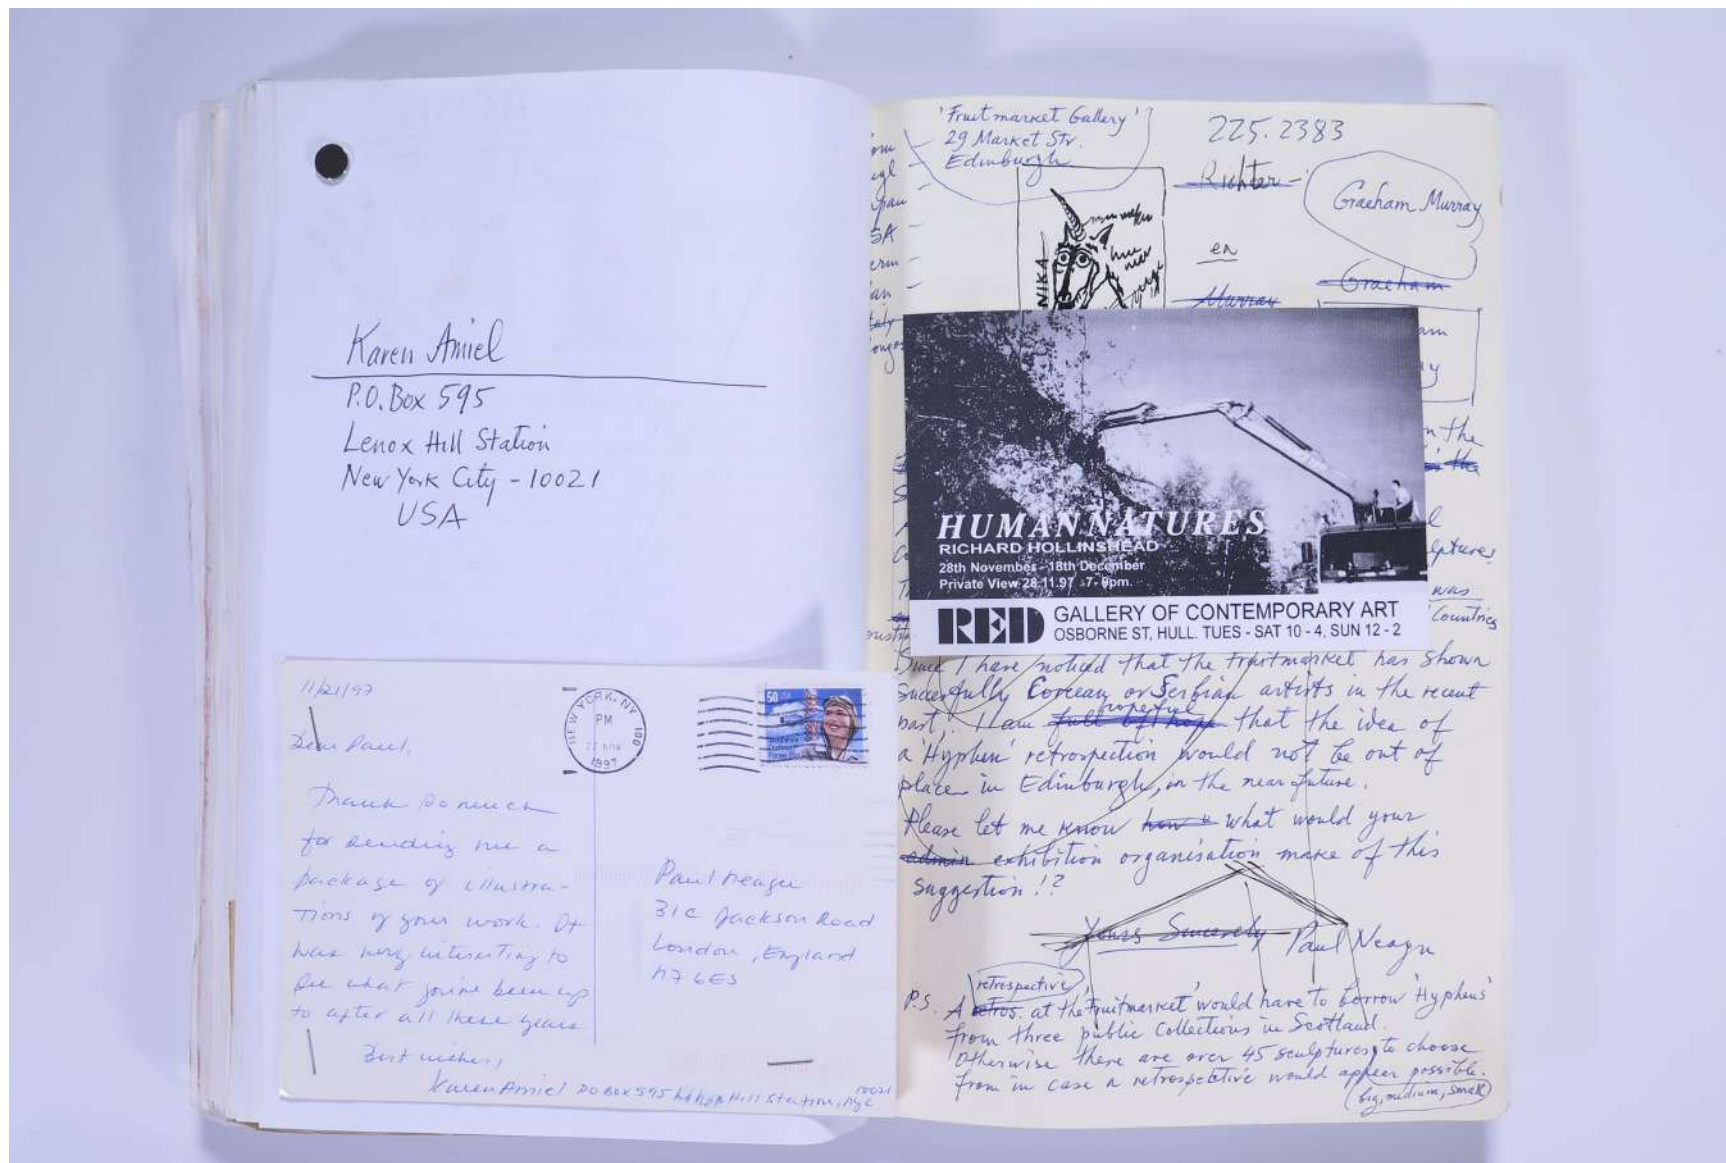 Karen Amiel
P.O. Box 595
Lenox Hill Station
New York City - 10021
USA
11/21/97
Dear Paul,
Thank so much
for sending me a
package of illustra-
tions of your work. It
was very interesting to
see what you've been up
to after all these years
Best wishes,
Karen Amiel PO Box 595 Lenox Hill Station, NYC 10021
NEW YORK, NY 100
PM
1997
50 USA
Paul Neagu
31c Jackson Road
London, England
N7 6ES
'Fruitmarket Gallery'
29 Market Str.
Edinburgh
225.2383
Richter -
Graeham Murray
en
Graeham
Murray
NIKA
SA
n the
the
lptures
was
Countries
HUMAN NATURES
RICHARD HOLLINSHEAD
28th November - 18th December
Private View 28.11.97 7-9pm.
RED GALLERY OF CONTEMPORARY ART
OSBORNE ST, HULL. TUES - SAT 10 - 4, SUN 12 - 2
Since I have noticed that the Fruitmarket has shown
Succesfully Corean or Serbian artists in the recent
past. I am full of hope hopeful that the idea of
a 'Hyphen' retrospection would not be out of
place in Edinburgh, in the near future.
Please let me know how what would your
admin exhibition organisation make of this
suggestion!?
Yours Sincerely Paul Neagu
retrospective
P.S. A retros. at the 'Fruitmarket' would have to borrow 'Hyphens'
from three public Collections in Scotland.
Otherwise there are over 45 sculptures to choose
from in case a retrospective would appear possible.
(big, medium, small)